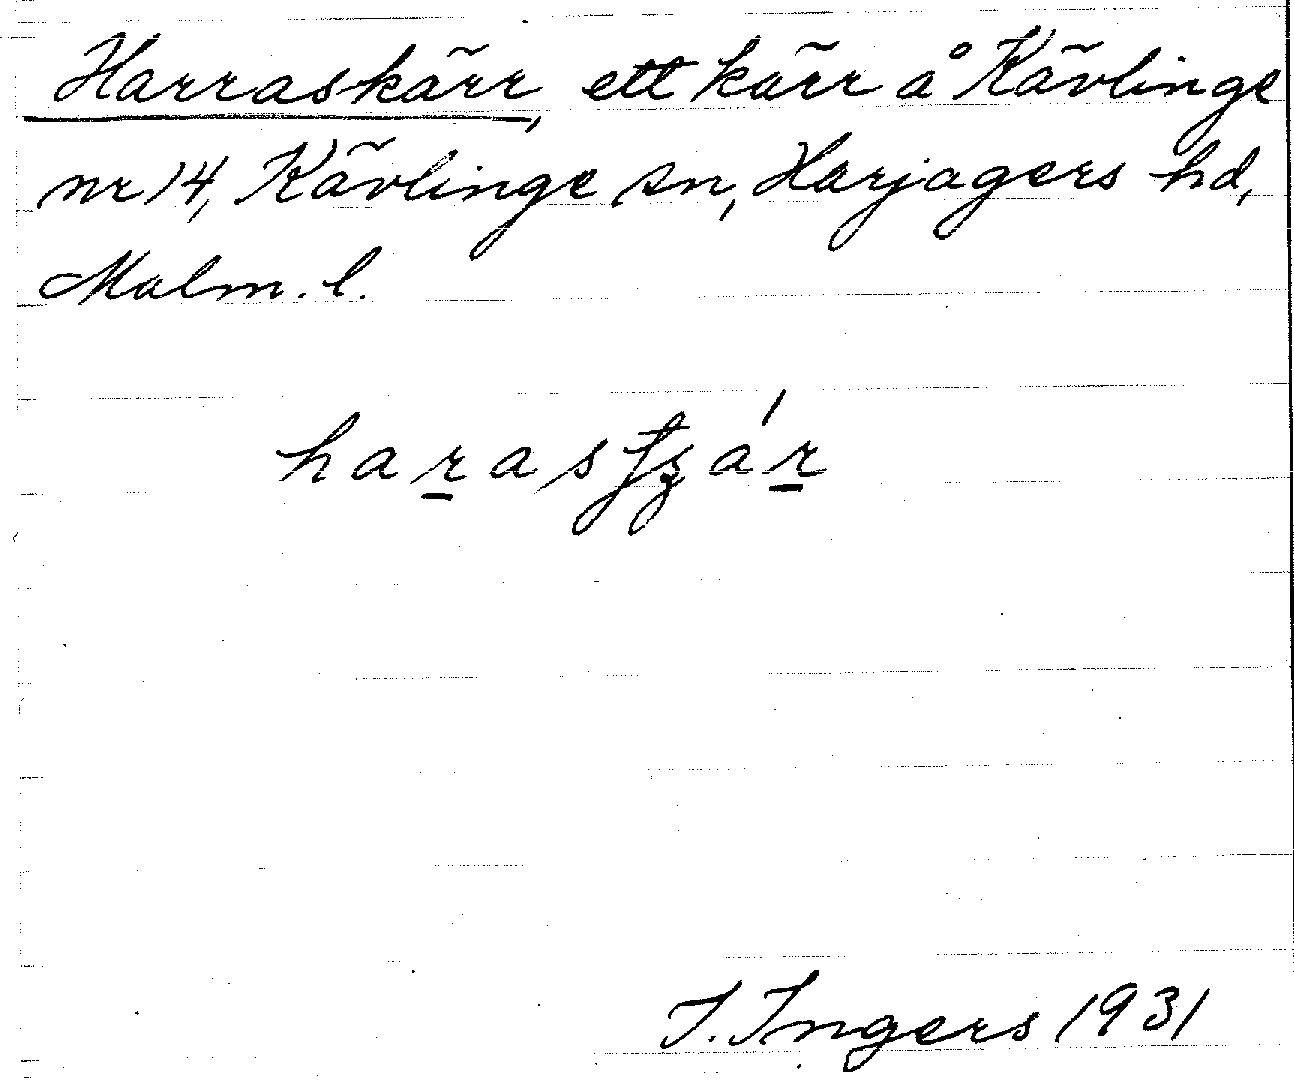 Harraskärr, ett kärr å Kävlinge
nr 14, Kävlinge sn, Harjagers hd,
Malm. l.
I. Ingers 1931